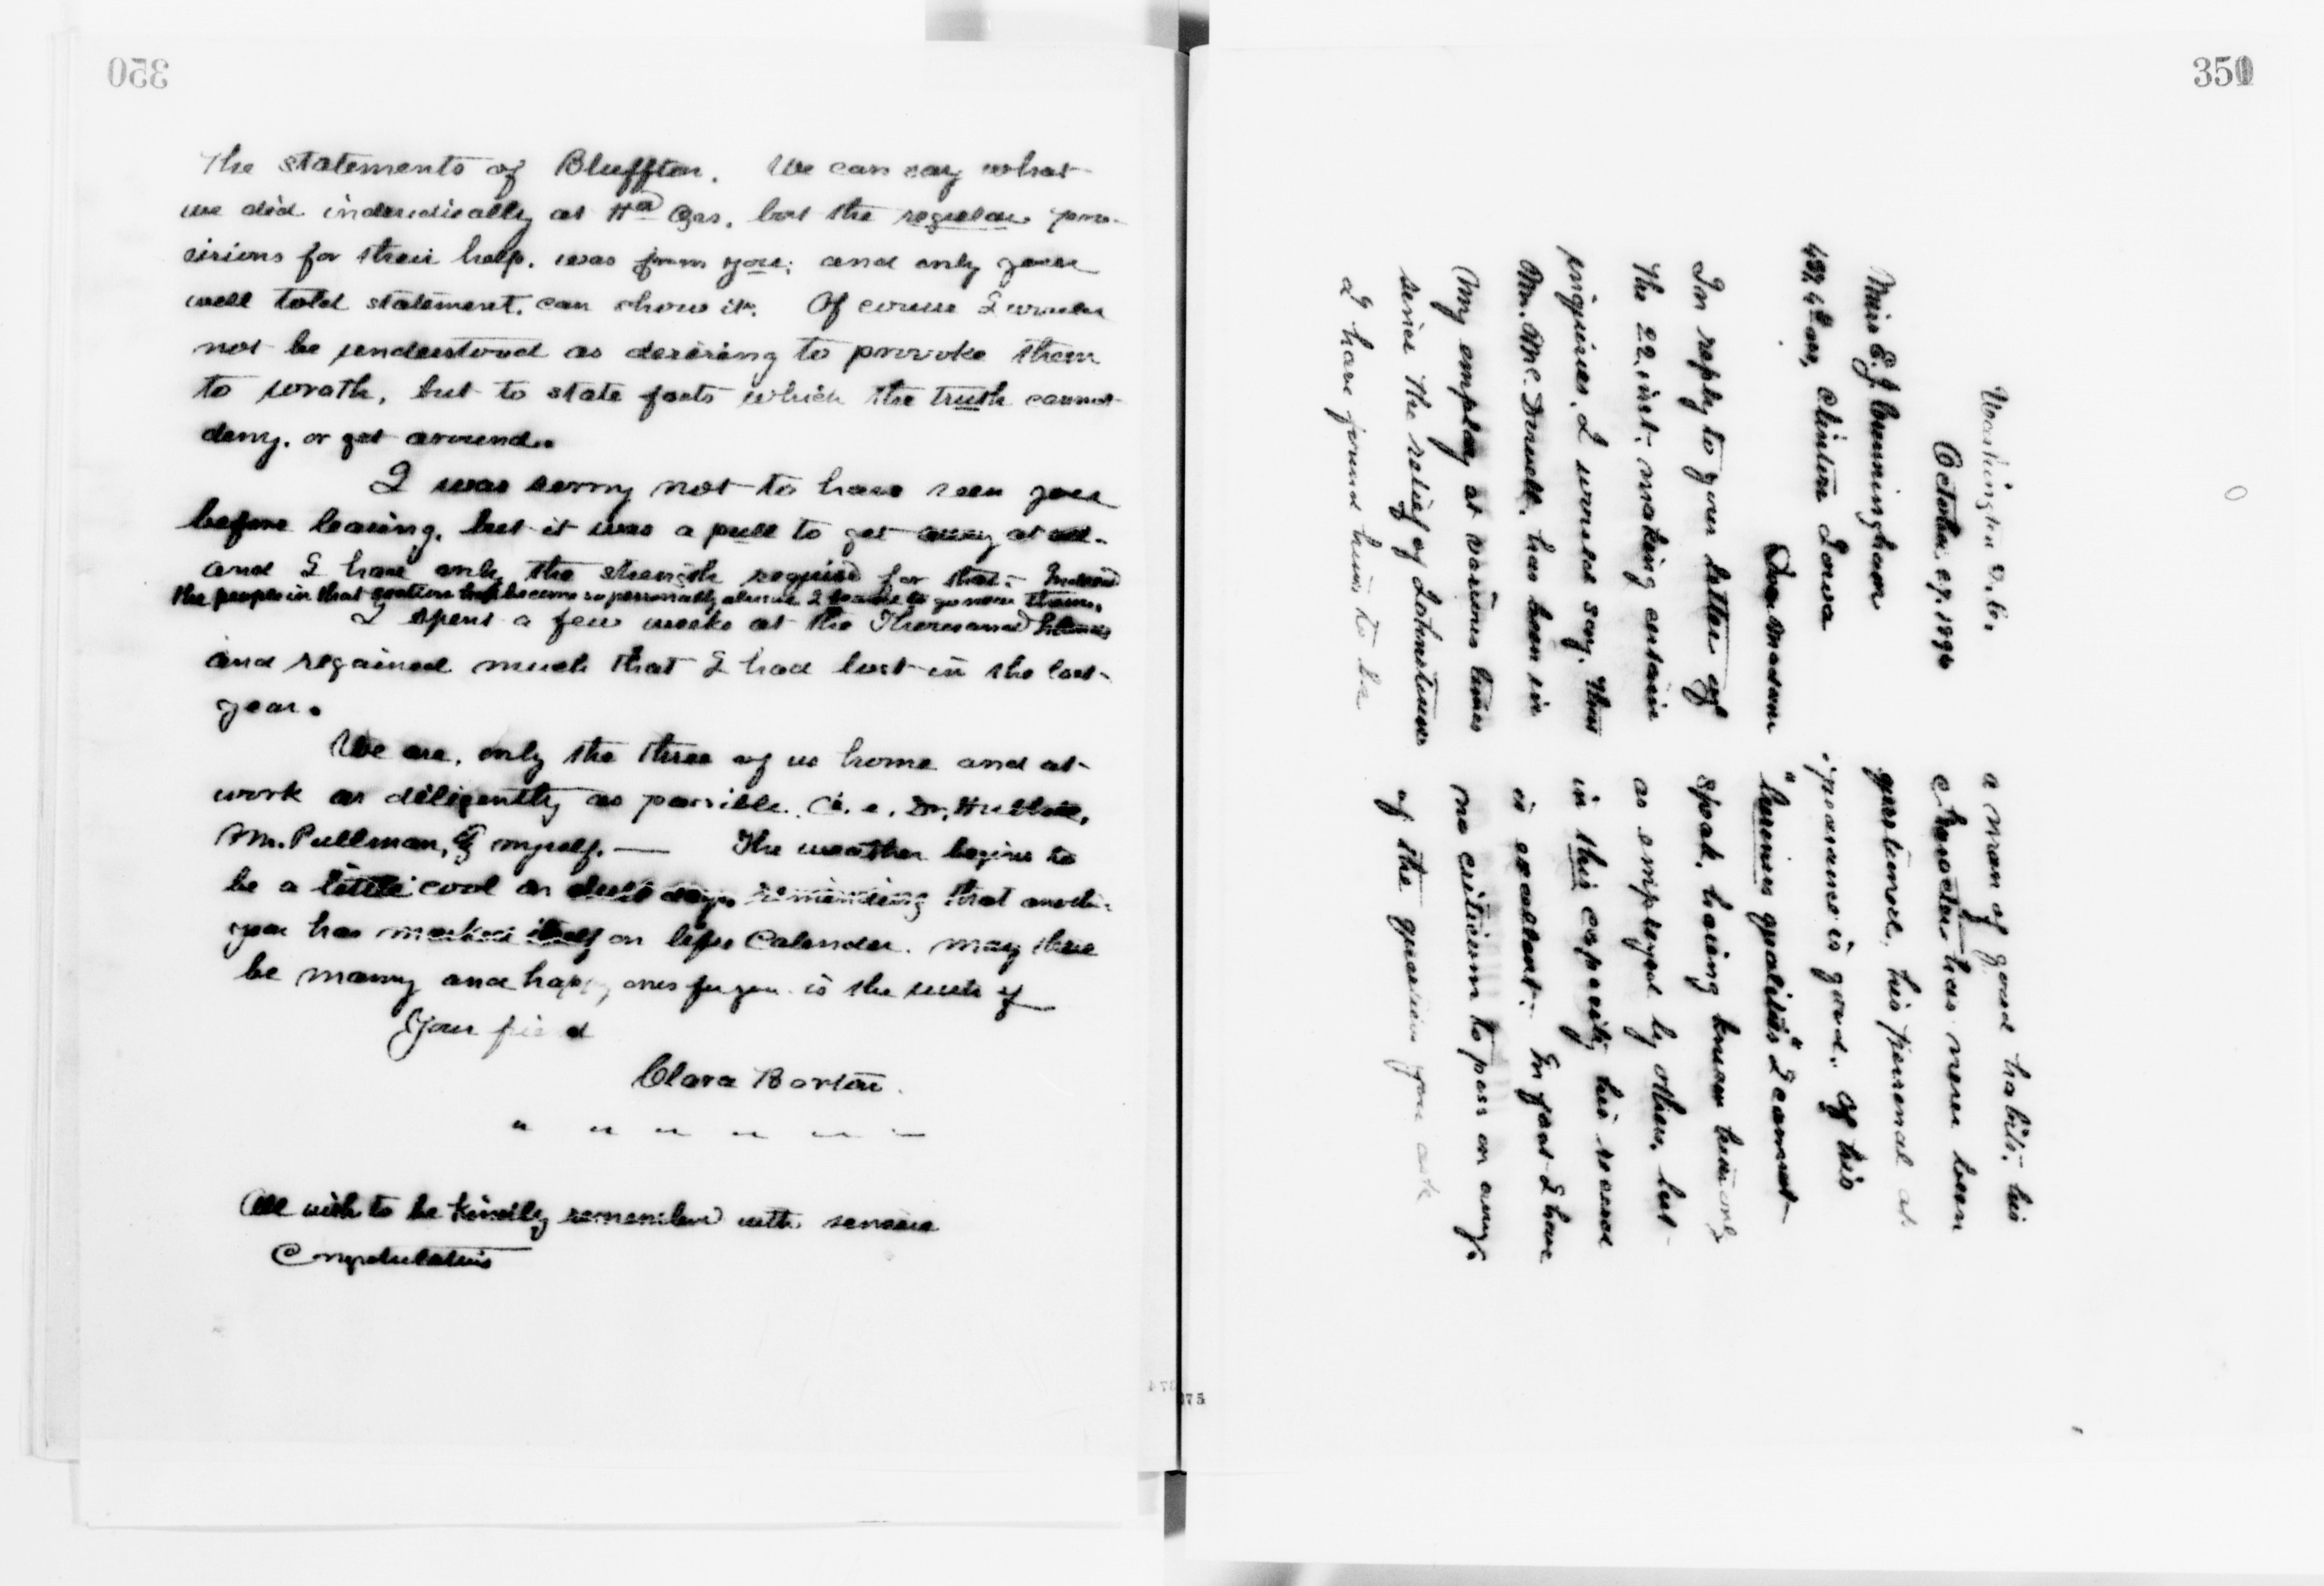 350
The statements of Bluffton. We can say what
we did individually at Hd Qrs. but the regular pro-
visions for their help. was from you; and only your
well told statement. can show it. Of course I would
not be understood as desiring to provoke them
to wrath, but to state facts which the truth cannot
deny. or get around.
I was sorry not to have seen you
before leaving, but it was a pull to get away at all-
and I have only the strength required for that. - Indeed
the people in that section have become so personally abusive I to go near them.
I spent a few weeks at the Thousand Islands
and regained much that I had lost in the last
year.
We are, only the three of us home and at
work as diligently as possible. i. e. Dr. Hubbell,
Mr. Pullman, & myself. — The weather begins to
be a little cool on dull days reminding that another
year has marked itself on lifes Calender. may there
be many and happy ones for you is the wish of
Your friend
Clara Barton.
" " " " " "
All wish to be kindly remembered with sincere
Congratulations
351
Washington D.C.
October. 27. 1896
Miss E. J. Cunningham
Clinton Iowa
Dear Madam
In reply to your letter of
the 22. inst- making certain
inquiries, I would say. that
Mr. McDowell. has been in
my employ at various times
since the relief of Johnstown
I have found him to be
a man of good habits, his
character has never been
questioned, his personal ap-
pearance is good. Of his
"business qualities" I cannot
speak, having known him only
as employed by others, but
in this capacity his record
is excellent. In fact I have
no criticism to pass on any.
of the question you ask
374
375